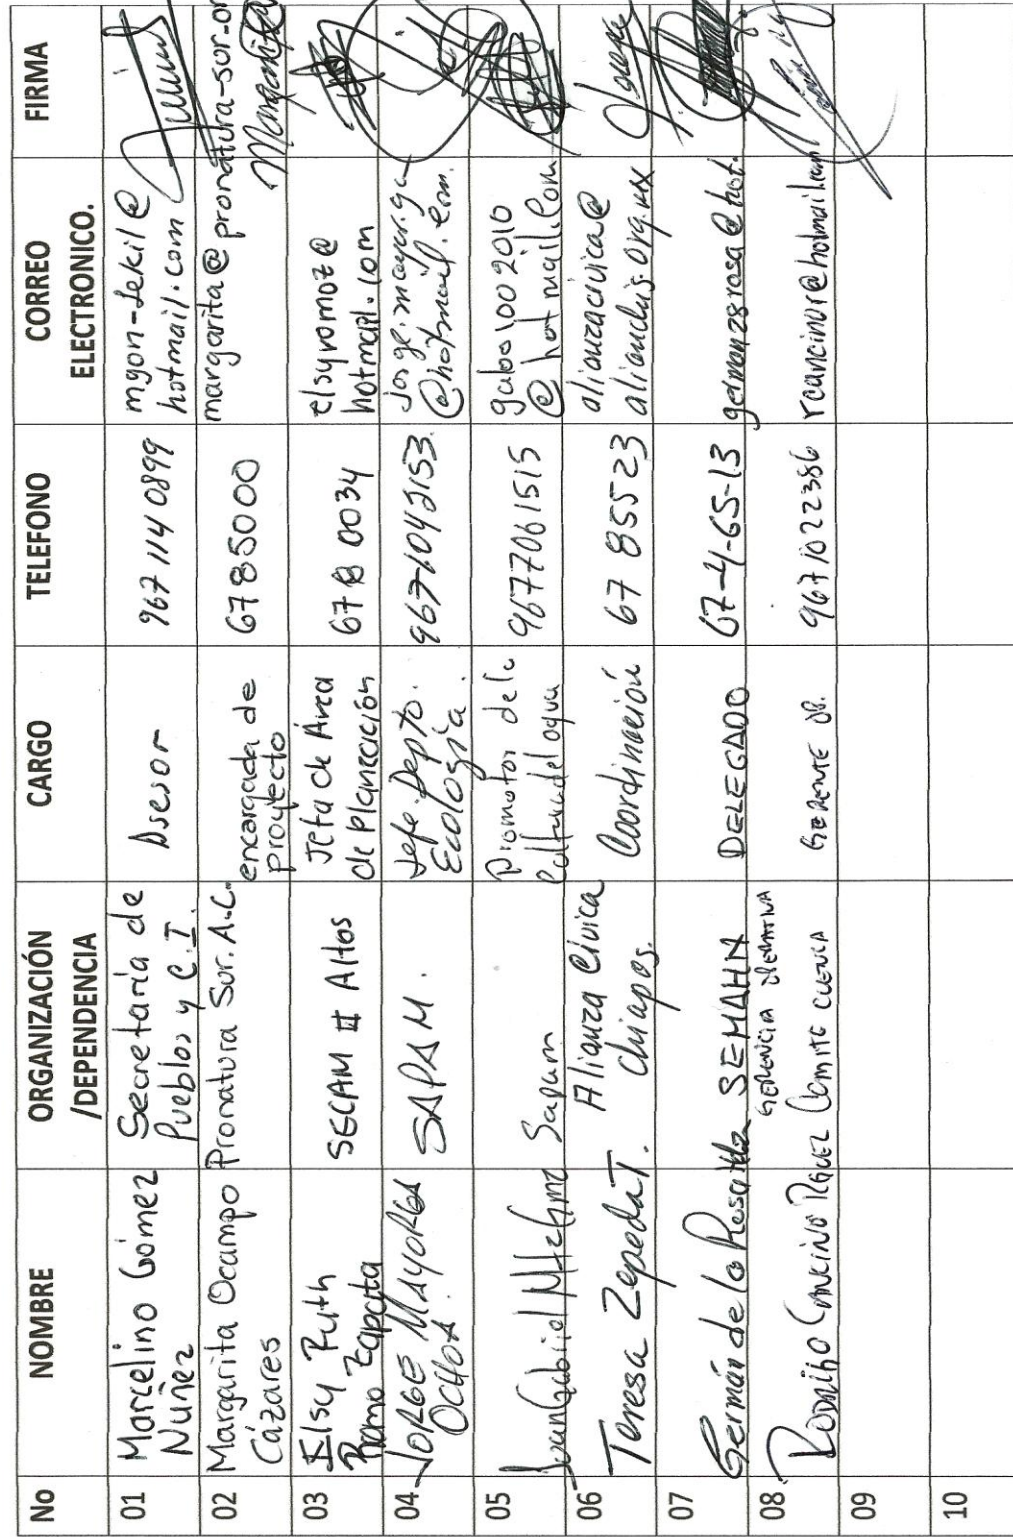 No
NOMBRE
ORGANIZACIÓN
/DEPENDENCIA
CARGO
TELEFONO
CORREO
ELECTRONICO.
FIRMA
01
Marcelino Gómez
Nuñez
Secretaría de
Pueblos y C.I.
Asesor
967 114 0899
mgon-lekil@
hotmail.com
02
Margarita Ocampo
Cázares
Pronatura Sur. A.C.
encargada de
proyecto
6785000
margarita@pronatura-sur.or
Margarita
03
Elsy Ruth
Ramo Zapata
SECAM II Altos
Jefa de Área
de planeación
678 0034
elsyromoz@
hotmail.com
04
JORGE MAYORGA
OCHOA
SAPAM.
Jefe Depto.
Ecología.
9671042153.
@hotmail.com.
05
Juan Gabriel
Sapam
Promotor de la
Cultura del agua
9677061515
gabo1002010
@hotmail.com
06
Teresa Zepeda T.
Alianza Cívica
Chiapas.
Coordinación
67 85523
alianzacivica@
alianchis.org.mx
07
Germán de la Rosa
SEMAHN
DELEGADO
67-4-65-13
germanzsrosa@hot.
08
RODMIRO CANCINO RGUEZ
GERENCIA OPERATIVA
COMITE CUENCA
GERENTE OP.
9671022386
rcancinor@hotmail.com
09
10